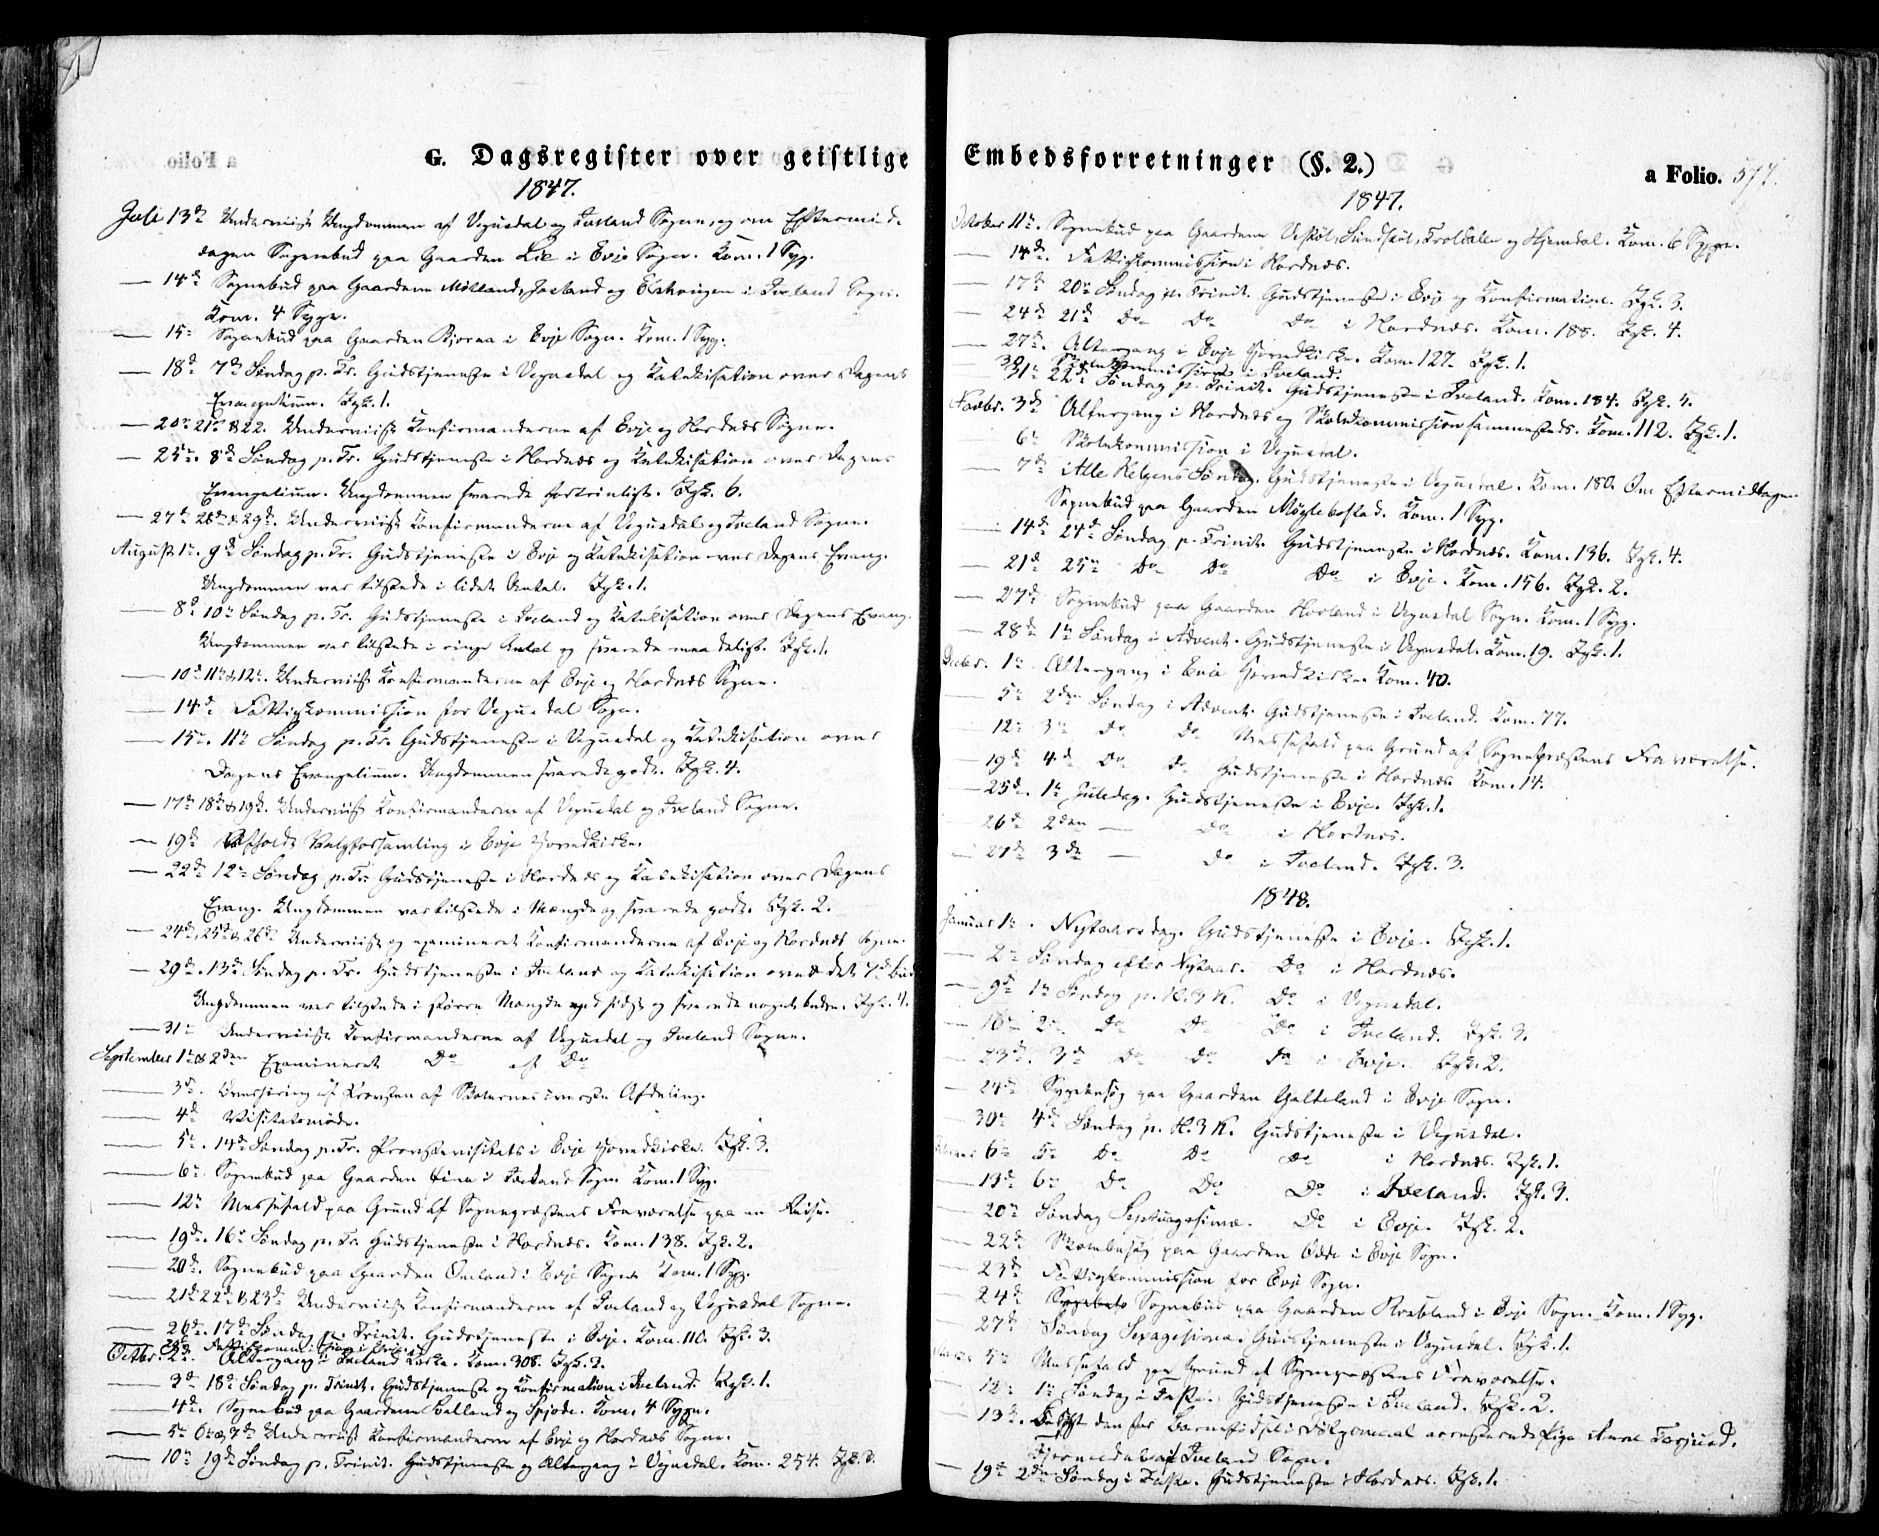 G. Dagsregister over geistlige
1847.
Juli 13de Underviist Ungdommen af Vegusdal og Iveland Sogne, og om Eftermid-
dagen Sognebud paa Gaarden Lie i Evje Sogn. Kom. 1 Syg.
— 14de Sognebud paa Gaardene Mølland, Iveland og i Iveland Sogn.
Kom. 4 Syge.
— 15de Sognebud paa Gaarden Bjoraa i Evje Sogn. Kom. 1 Syg.
— 18de 7de Søndag p. Tr. Gudstjeneste i Vegusdal og Katekisation over Dagens
Evangelium. 1.
— 20de 21de & 22. Underviist Konfirmanderne af Evje og Hordnæs Sogne.
— 25de. 8de Søndag p. Tr. Gudstjeneste i Hordnæs og Katekisation over Dagens
Evangelium. Ungdommen svarede fortrinligt. 6.
— 27de 28de & 29de. Underviist Konfirmanderne af Vegusdal og Iveland Sogne.
August 1ste. 9de Søndag p. Tr. Gudstjeneste i Evje og Katekisation over Dagens Evang.
Ungdommen var tilstede i lidet Antal. 1.
— 8de 10de Søndag p. Tr. Gudstjeneste i Iveland og Katekisation over Dagens Evang.
Ungdommen var tilstede i ringe Antal og svarede maadeligt. 1.
— 10de 11te & 12te. Underviist Konfirmanderne af Evje og Hordnæs Sogne.
— 14de Fattigkommission for Vegusdal Sogn.
— 15de. 11te Søndag p. Tr. Gudstjeneste i Vegusdal og Katekisation over
Dagens Evangelium. Ungdommen svarede godt. 4.
— 17de 18de & 19de. Underviist Konfirmanderne af Vegusdal og Iveland Sogne.
— 19de Afholdt Valgforsamling i Evje Hovedkirke.
— 22de 12te Søndag p. Tr. Gudstjeneste i Hordnæs og Katekisation over Dagens
Evang. Ungdommen var tilstede i Mængde og svarede godt. 2.
— 24de, 25de & 26de Underviist og examineret Konfirmanderne af Evje og Hordnæs Sogne.
— 29de. 13de Søndag p. Tr. Gudstjeneste i Iveland og Katekisation over det 7de Bud.
Ungdommen var tilstede i større Mængde end sidst og svarede noget bedre. 4.
— 31te Underviist Konfirmanderne af Vegusdal og Iveland Sogne.
September 1ste & 2den Examineret Do af Do
— 3de. af Provsten af Skolernes øverste Afdeling.
— 4de Visitatsmøde.
— 5te. 14de Søndag p. Tr. Provstevisitats i Evje Hovedkirke. 3.
— 6te Sognebud paa Gaarden i Iveland Sogn. Kom. 1 Syg.
— 12te Messefald paa Grund af Sognepræstens Fraværelse paa en Reise.
— 19de. 16de Søndag p. Tr. Gudstjeneste i Hordnæs. Kom. 138. 2.
— 20de. Sognebud paa Gaarden Omland i Evje Sogn. Kom. 1 Syg.
— 21de 22de & 23de Underviist Konfirmanderne af Iveland og Vegusdal Sogne.
— 26de. 17de Søndag p. Trinit. Gudstjeneste i Evje. Kom. 110. 3.
Fattigkommission i
Octbr. 2de. Altergang i Iveland Kirke. Kom. 308. 2.
— 3de 18de Søndag p. Trinit. Gudstjeneste og Konfirmation i Iveland. 1.
— 4de. Sognebud paa Gaardene og Kom. 4 Syge.
— 5te 6te & 7de Underviist Konfirmanderne af Evje og Hordnæs Sogne.
— 10de 19de Søndag p. Trinit. Gudstjeneste og Altergang i Vegusdal. Kom. 254. 3.
Embedsforretninger (§. 2.)
a Folio. 577.
1847.
October 11te. Sognebud paa Gaardene og Hjemdal. Kom. 6 Syge.
— 14de. Fattigkommission i Hordnæs.
— 17de 20de Søndag p. Trinit. Gudstjeneste i Evje og Konfirmation. 3.
— 24de 21de Do Do Do i Hordnæs. Kom. 188. 4.
— 27de. Altergang i Evje Hovedkirke. Kom. 127. 1.
30 Skolekommission i Iveland.
31te 22de Søndag p. Trinit. Gudstjeneste i Iveland. Kom. 184. 4.
Novbr. 3de Altergang i Hordnæs og Skolekommission sammesteds. Kom. 112. 1.
— 6te Skolekommission i Vegusdal.
— 7de Alle Helgens Søndag. Gudstjeneste i Vegusdal. Kom. 180. Om Eftermiddagen
Sognebud paa Gaarden Møglebostad. Kom. 1 Syg.
— 14de 24de Søndag p. Trinit. Gudstjeneste i Hordnæs. Kom. 136. 4.
— 21de 25de Do Do Do i Evje. Kom. 156. 2.
— 27de Sognebud paa Gaarden Hovland i Vegusdal Sogn. Kom. 1 Syg.
— 28de 1ste Søndag i Advent. Gudstjeneste i Vegusdal. Kom. 19. 1.
Decbr. 1ste Altergang i Evje Hovedkirke. Kom. 40.
— 5te 2den Søndag i Advent. Gudstjeneste i Iveland. Kom. 77.
12te 3de do do Messefald paa Grund af Sognepræstens Fraværelse.
— 19de 4de do do Gudstjeneste i Hordnæs. Kom. 14.
— 25de. 1ste Juledag. Gudstjeneste i Evje. 1.
26de 2den — do i Hordnæs.
— 27de 3de — do i Iveland. 3.
1848.
Januar 1ste. Nytaarsdag. Gudstjeneste i Evje. 1.
— 2den Søndag efter Nytaar. Do i Hordnæs.
— 9de 1ste Søndag p. H. 3 K. Do i Vegusdal.
— 16de 2den Do Do Do i Iveland. 3.
— 23de. 3de Do Do Do i Evje. 2.
— 24de Sygebesøg paa Gaarden Galteland i Evje Sogn.
— 30te 4de Søndag p. H. 3 K. Gudstjeneste i Vegusdal.
6te 5te Do Do Do i Hordnæs. 1.
— 13de 6te Do Do Do i Iveland. 3.
— 20de Søndag Septuagesima. Do i Evje. 2.
— 22de paa Gaarden Odde i Evje Sogn.
— 23de Fattigkommission for Evje Sogn.
— 24de Sognebud paa Gaarden i Evje Sogn. Kom. 1 Syg.
— 27de Søndag Sexagesima. Gudstjeneste i Vegusdal. 1.
5te Messefald paa Grund af Sognepræstens Fraværelse.
— 12te 1ste Søndag i Faste. Gudstjeneste i Iveland. 2.
— 13de. den for Barnefødsel i Dølgsmaal arresterede Pige Anne
af Iveland Sogn.
— 19de 2den Søndag i Faste. Gudstjeneste i Hordnæs. 1.